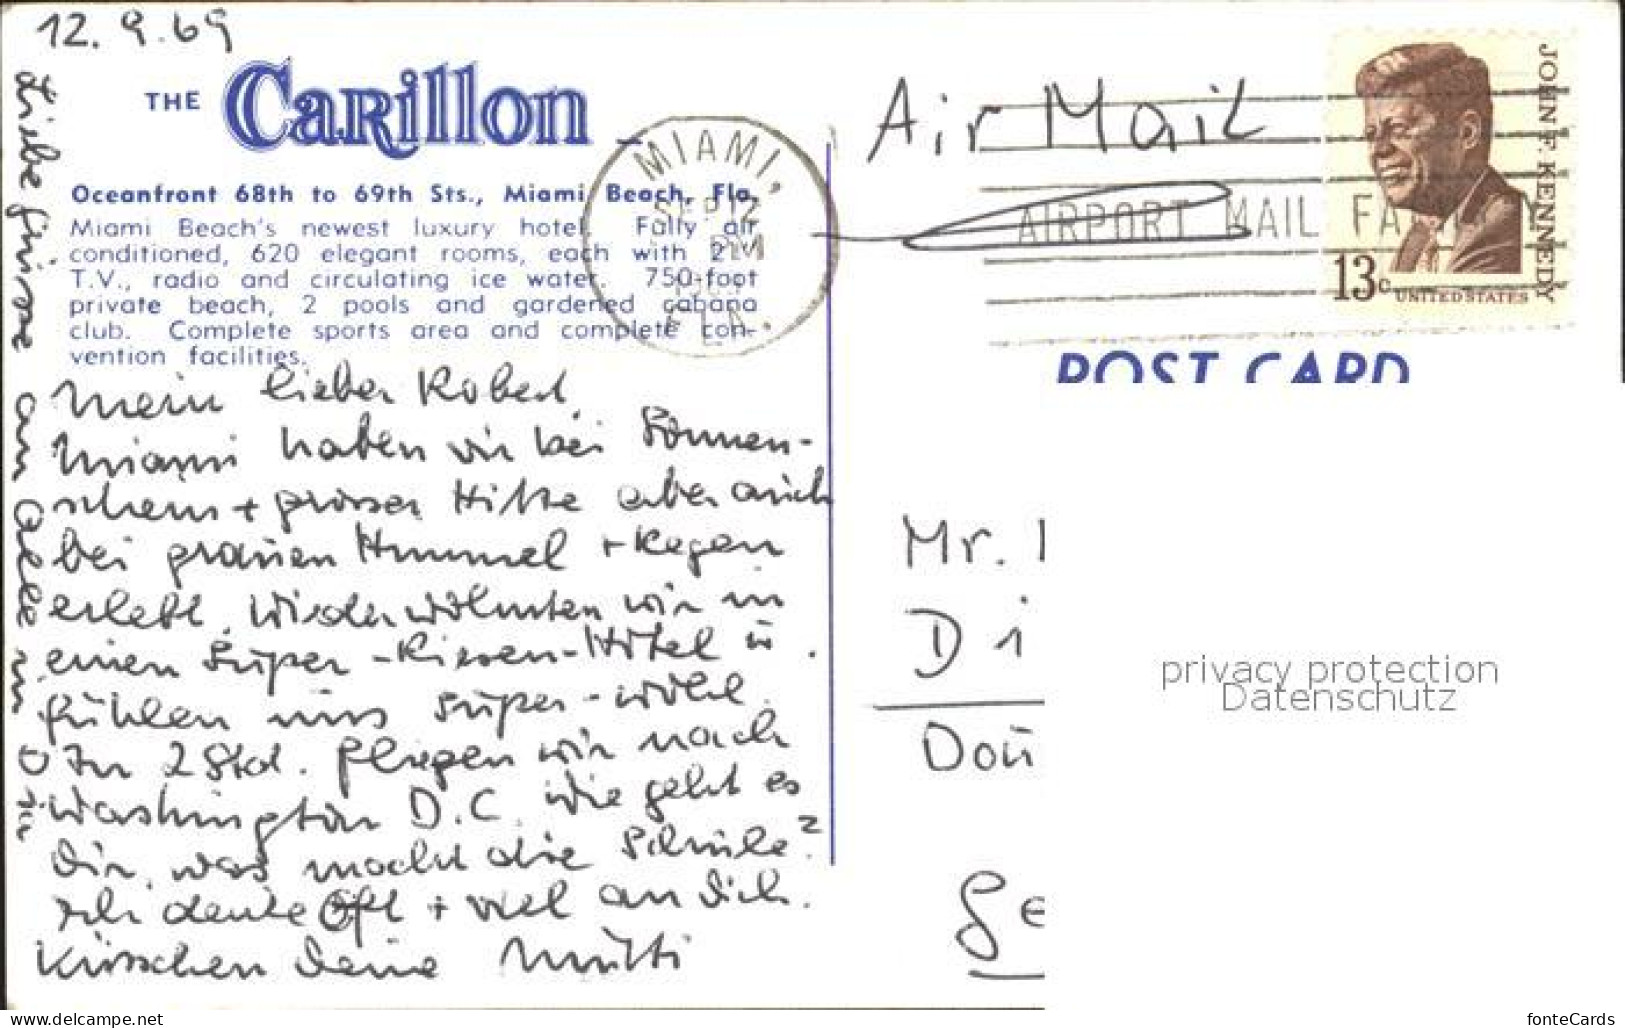 12.9.69
THE Carillon
Oceanfront 68th to 69th Sts., Miami Beach, Fla.
Miami Beach's newest luxury hotel. Fully air
conditioned, 620 elegant rooms, each with 21"
T.V., radio and circulating ice water. 750-foot
private beach, 2 pools and gardened cabana
club. Complete sports area and complete con-
vention facilities.
Mein lieber Robert,
Miami haben wir bei Sonnen-
schein + grosser Hitze aber auch
bei grauen Himmel + Regen
erlebt. Wieder wohnten wir in
einen Super-Riesen-Hotel u.
fühlen uns super-wohl.
In 2 Std. fliegen wir nach
Washington D.C. Wie geht es
Dir, was macht die Schule?
Ich denke oft + viel an Dich.
Küsschen Deine Mutti
Liebe Grüsse an Alle in
Air Mail
MIAMI,
SEP 12
PM
FLA.
AIRPORT MAIL FA
JOHN F. KENNEDY
13c UNITED STATES
POST CARD
Mr.
Di
Dou
Ge
privacy protection
Datenschutz
www.delcampe.net
fonteCards